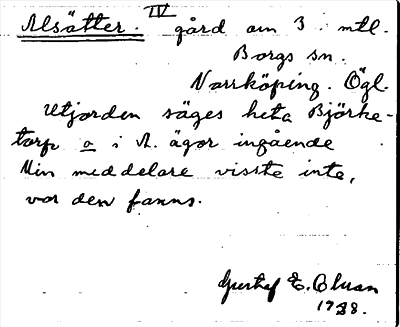 Alsätter. IV gård om 3 mtl.
Borgs sn.
Norrköping. Ögl.
Utjorden säges heta Björke-
torp o i A. ägor ingående
Min meddelare visste inte,
var den fanns.
Gustaf E. Olsson
1928.